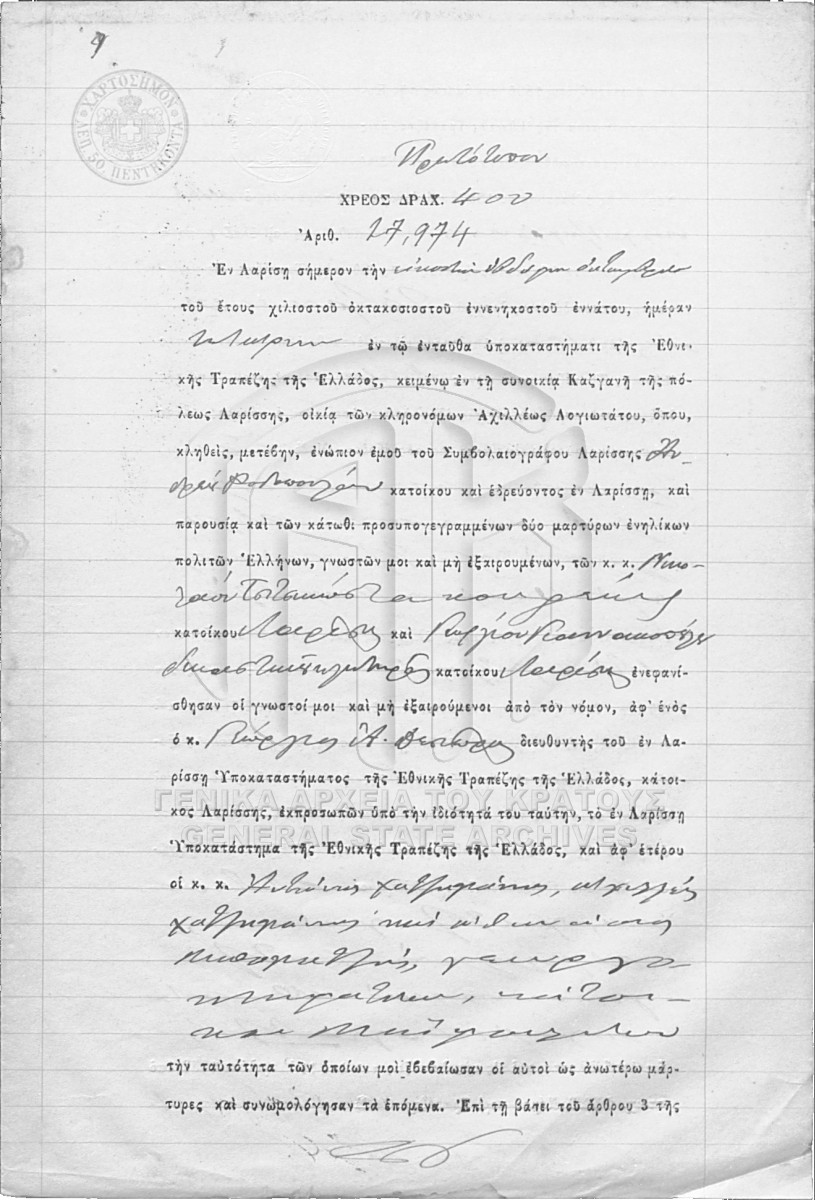 ΧΑΡΤΟΣΗΜΟΝ
ΛΕΠ. 50 ΠΕΝΤΗΚΟΝΤΑ
Πρωτότυπον
ΧΡΕΟΣ ΔΡΑΧ. 400
Ἀριθ. 27,974
Ἐν Λαρίσῃ σήμερον τὴν εἰκοστὴν ἑβδόμην Ὀκτωβρίου
τοῦ ἔτους χιλιοστοῦ ὀκτακοσιοστοῦ ἐννενηκοστοῦ ἐννάτου, ἡμέραν
Τετάρτην ἐν τῷ ἐνταῦθα ὑποκαταστήματι τῆς Ἐθνι-
κῆς Τραπέζης τῆς Ἑλλάδος, κειμένῳ ἐν τῇ συνοικίᾳ Καζγανῆ τῆς πό-
λεως Λαρίσσης, οἰκίᾳ τῶν κληρονόμων Ἀχιλλέως Λογιωτάτου, ὅπου,
κληθεὶς, μετέβην, ἐνώπιον ἐμοῦ τοῦ Συμβολαιογράφου Λαρίσσης Ἀν-
δρέα Ῥοδοπούλου κατοίκου καὶ ἑδρεύοντος ἐν Λαρίσσῃ, καὶ
παρουσίᾳ καὶ τῶν κάτωθι προσυπογεγραμμένων δύο μαρτύρων ἐνηλίκων
πολιτῶν Ἑλλήνων, γνωστῶν μοι καὶ μὴ ἐξαιρουμένων, τῶν κ. κ. Νικο-
κατοίκου Λαρίσης καὶ Γεωργίου Γιαννακοπούλου
κατοίκου Λαρίσης ἐνεφανί-
σθησαν οἱ γνωστοί μοι καὶ μὴ ἐξαιρούμενοι ἀπὸ τὸν νόμον, ἀφ' ἑνὸς
ὁ κ. Γεώργιος Ἀ. διευθυντὴς τοῦ ἐν Λα-
ρίσσῃ Ὑποκαταστήματος τῆς Ἐθνικῆς Τραπέζης τῆς Ἑλλάδος, κάτοι-
κος Λαρίσσης, ἐκπροσωπῶν ὑπὸ τὴν ἰδιότητά του ταύτην, τὸ ἐν Λαρίσσῃ
ΓΕΝΙΚΑ ΑΡΧΕΙΑ ΤΟΥ ΚΡΑΤΟΥΣ
GENERAL STATE ARCHIVES
Ὑποκατάστημα τῆς Ἐθνικῆς Τραπέζης τῆς Ἑλλάδος, καὶ ἀφ' ἑτέρου
οἱ κ. κ. Ἀντώνιος
καὶ Ἀθανάσιος
κτηματίαι, κάτοι-
κοι
τὴν ταυτότητα τῶν ὁποίων μοὶ ἐβεβαίωσαν οἱ αὐτοὶ ὡς ἀνωτέρω μάρ-
τυρες καὶ συνωμολόγησαν τὰ ἑπόμενα. Ἐπὶ τῇ βάσει τοῦ ἄρθρου 3 τῆς